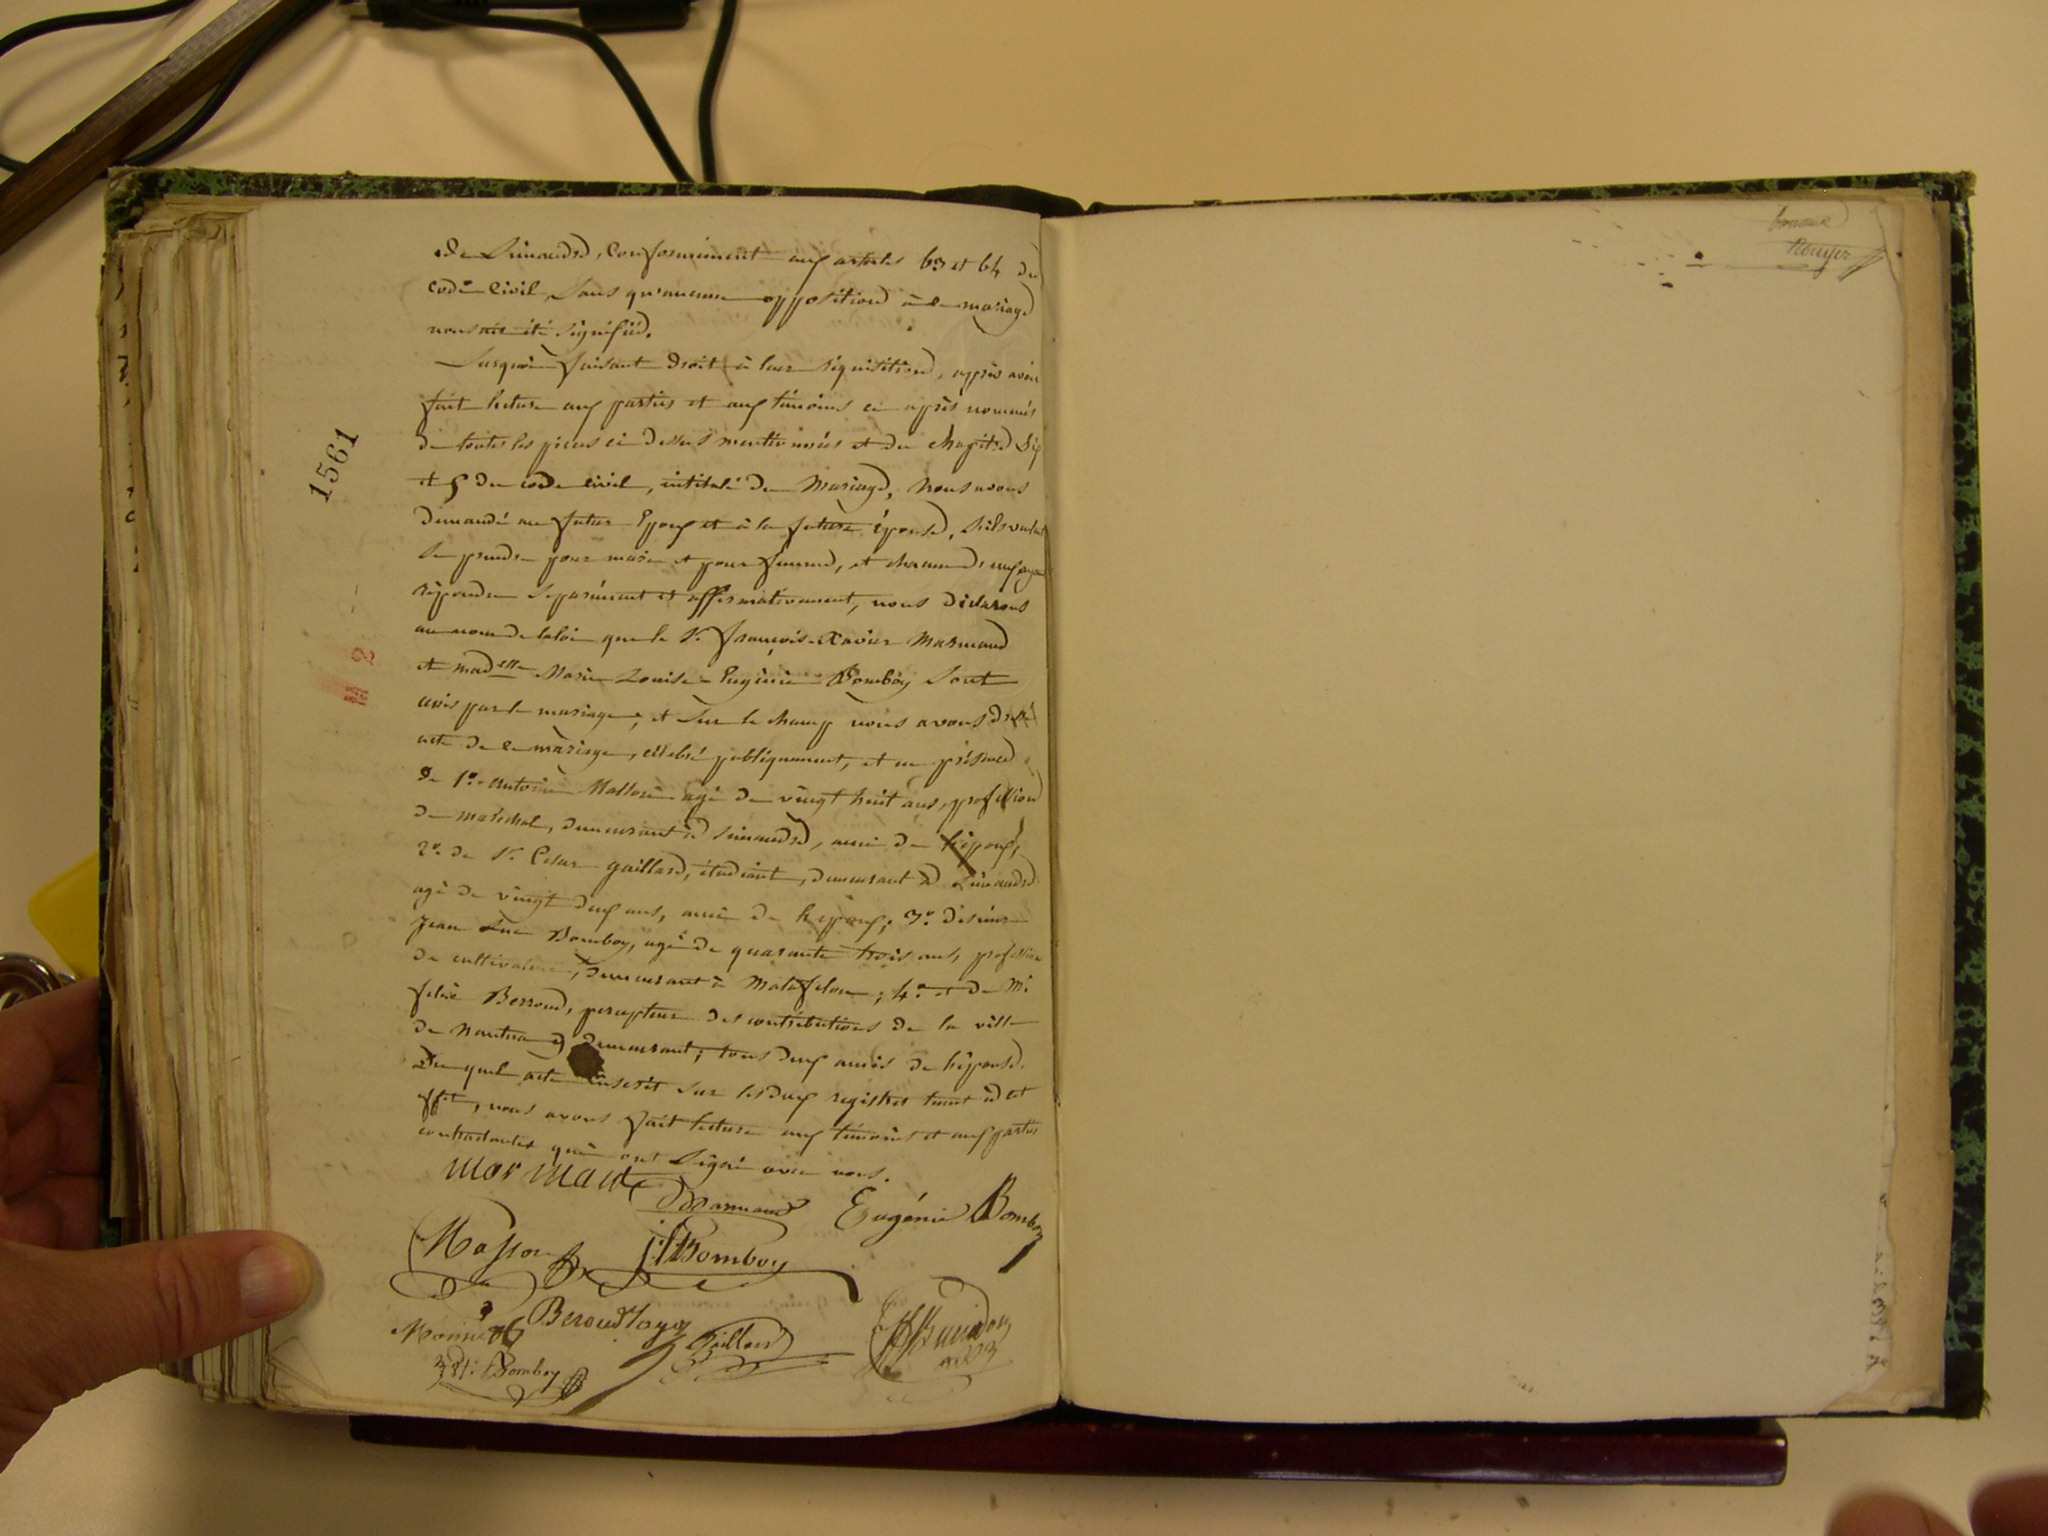 de Simandre, conformément aux articles 63 et 64 du
code Civil, Sans qu'aucune opposition à ce mariage
nous ait été signifiée.
Surquoi faisant droit à leur réquisition, après avoir
fait lecture aux parties et aux témoins ci après nommés
de toutes les pièces ci dessus mentionnées et du chapitre Six
et 5 du code civil, intitulé du Mariage, Nous avons
demandé au futur Epoux et à la future épouse, s'ils veulent
se prendre pour mari et pour femme, et chacun d'eux ayant
répondu séparément et affirmativement, nous déclarons
au nom de la loi que le Sr. françois-Xavier Marmand
et madelle Marie Louise Eugénie Bomboy Sont
unis par le mariage; et Sur le champ nous avons dressé
acte de ce mariage, célébré publiquement, et en présence
de 1°. antoine agé de vingt huit ans, profession
de maréchal, demeurant à Simandre, ami de l'époux,
2°. de Sr. Cesar gaillard, étudiant, demeurant à Simandre
agé de vingt deux ans, ami de l'époux; 3°. de sieur
Jean Luc Bomboy, agé de quarante trois ans, profession
de cultivateur, demeurant à Matafelon; 4°. et de Mr.
félix Berroud, percepteur des contributions de la ville
de Nantua y demeurant; tous deux amis de l'épouse.
Du quel acte inscrit sur les deux registres tenus à cet
effet, nous avons fait lecture aux témoins et aux parties
contractantes qui ont Signé avec nous.
marmand
Marmand Eugénie Bomboy
Masson Bomboy
Beroud Gaillard
Bomboy
1561
2
Rouyer